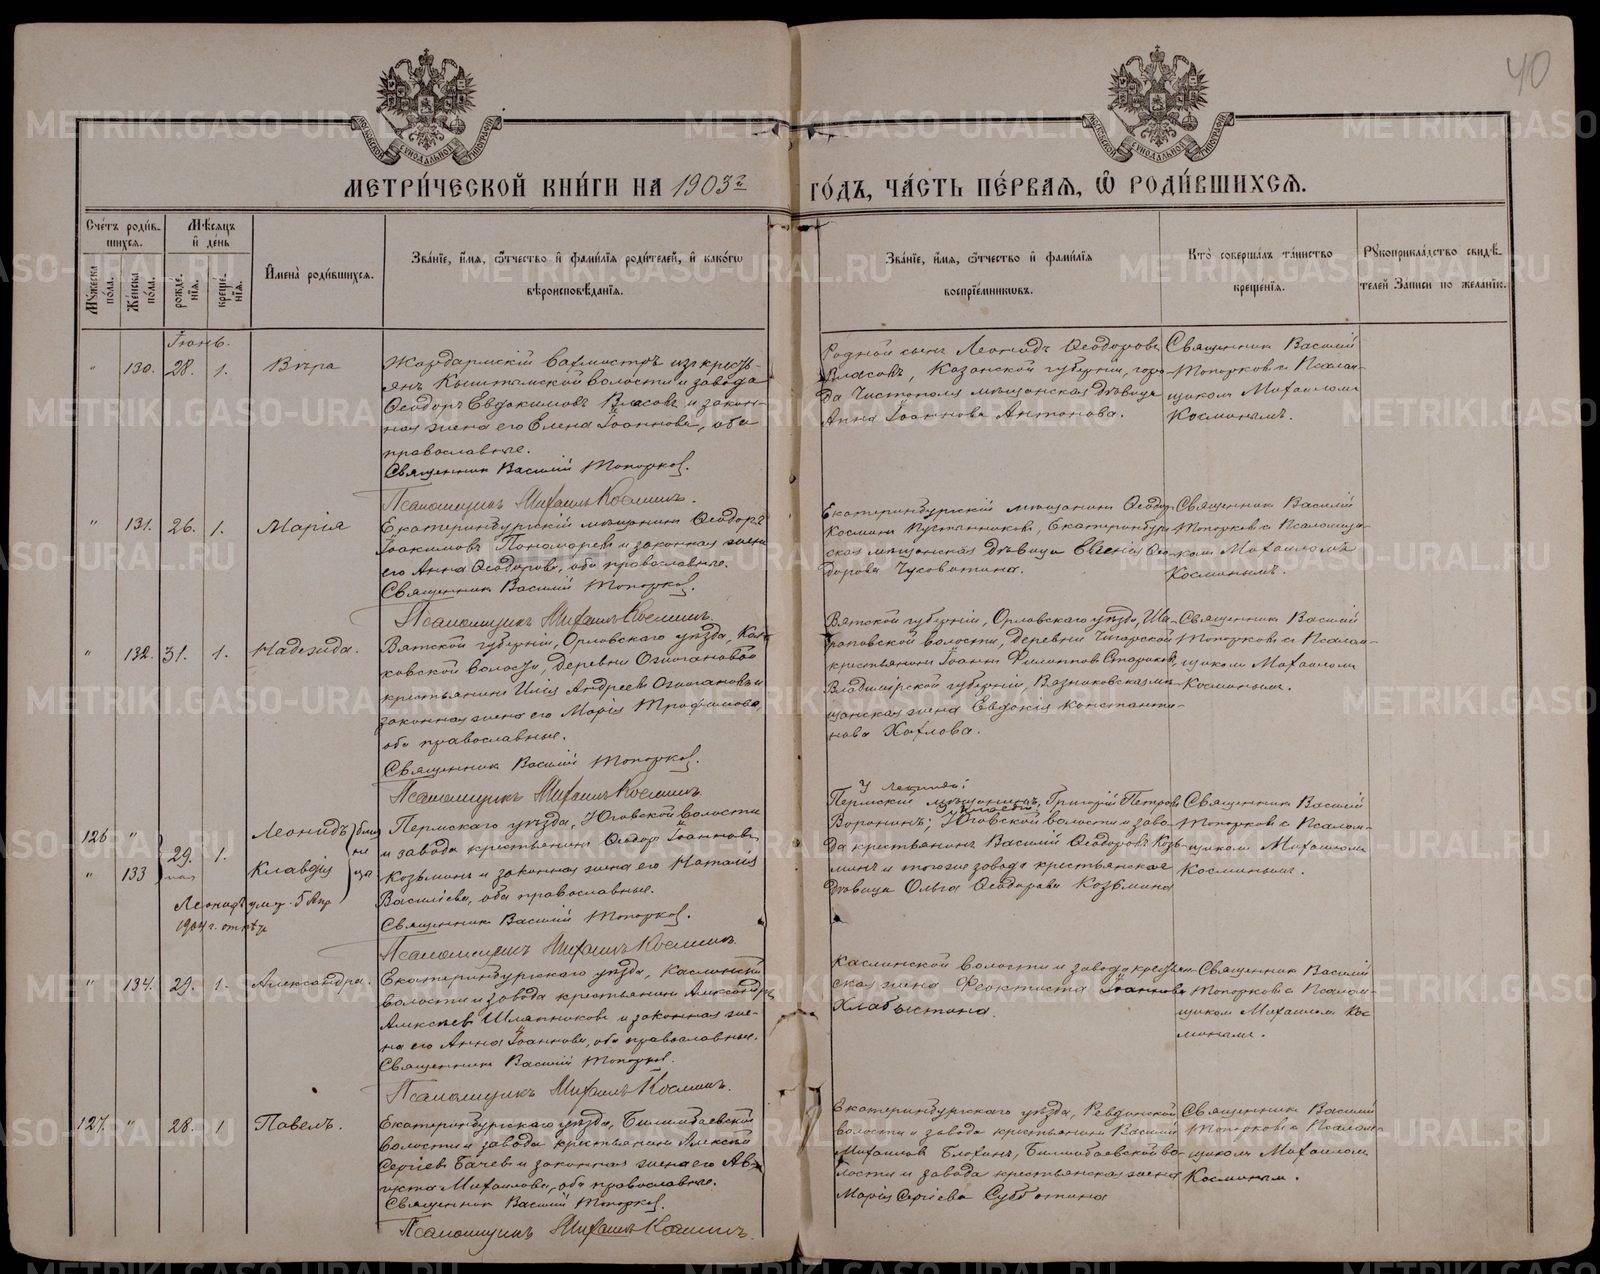 40
МЕТРИ́ЧЕСКОЙ КНИ́ГИ НА 1903 г
ГО́ДЪ, ЧА́СТЬ ПЕ́РВАЯ, Ѿ РОДИ́ВШИХСЯ.
Сче́тъ роди́вшихся.
Мꙋ́жеска по́ла.
Же́нска по́ла.
Мѣ́сяцъ и҆ де́нь
рожде́нїя.
креще́нїя.
И҆мена̀ роди́вшихся.
Зва́нїе, и҆́мя, ѻ҆́тчество и҆ фами́лїя роди́телей, и҆ како́гѡ
вѣроисповѣ́данїя.
Зва́нїе, и҆́мя, ѻ҆́тчество и҆ фами́лїя
воспрїе́мникѡвъ.
Кто̀ соверша́лъ та́инство
креще́нїя.
Рꙋкоприкла́дство свидѣ́
телей за́писи по жела́нїю.
Іюнь.
" 130. 28. 1. Вѣра
Жандармскій вахмистръ изъ кресть-
янъ Кыштымской волости и завода
Ѳеодоръ Евдокимовъ Власовъ и закон-
ная жена его Елена Іоаннова, оба
православные.
Священникъ Василій Топорковъ.
Псаломщикъ Михаилъ Косминъ.
Родной сынъ Леонидъ Ѳеодоровъ
Власовъ, Казанской губерніи, горо-
да Чистополя мѣщанская дѣвица
Анна Іоаннова Антонова.
Священникъ Василій
Топорковъ с Псалом-
щикомъ Михаиломъ
Косминымъ.
" 131. 26. 1. Марія
Екатеринбургскій мѣщанинъ Ѳеодоръ
Іоакимовъ Пономаревъ и законная жена
его Анна Ѳеодорова, оба православные.
Священникъ Василій Топорковъ.
Псаломщикъ Михаилъ Косминъ.
Екатеринбургскій мѣщанинъ Ѳеодоръ
Косминъ Пустынниковъ, Екатеринбург-
ская мѣщанская дѣвица Евгенія Ѳео-
дорова Чусовитина.
Священникъ Василій
Топорковъ с Псаломщи-
комъ Михаиломъ
Косминымъ.
" 132. 31. 1. Надежда.
Вятской губерніи, Орловскаго уѣзда,
волости, деревни
крестьянинъ Илія Андреевъ и
законная жена его Марія Трофимова,
оба православные.
Священникъ Василій Топорковъ.
Псаломщикъ Михаилъ Косминъ.
Вятской губерніи, Орловскаго уѣзда,
волости, деревни
крестьянинъ Іоаннъ Филипповъ Стариковъ,
Владимірской губерніи, Вязниковская мѣ-
щанская жена Евдокія Константи-
нова Хохлова.
Священникъ Василій
Топорковъ с Псалом-
щикомъ Михаиломъ
Косминымъ.
126 " Леонидъ
29. 1. близнецы
" 133 Клавдія
Леонидъ ум. 5 Апр
1904 г.
Пермскаго уѣзда, Юговской волости
и завода крестьянинъ Ѳеодоръ Іоанновъ
Козьминъ и законная жена его Наталія
Васильева, оба православные.
Священникъ Василій Топорковъ.
Псаломщикъ Михаилъ Косминъ.
У Леонида:
Пермскій мѣщанинъ, Григорій Петровъ
Воронинъ; у Клавдіи: Юговской волости и заво-
да крестьянинъ Василій Ѳеодоровъ Козь-
минъ и того же завода крестьянская
дѣвица Ольга Ѳеодорова Козьмина
Священникъ Василій
Топорковъ с Псалом-
щикомъ Михаиломъ
Косминымъ.
" 134. 29. 1. Александра.
Екатеринбургскаго уѣзда, Каслинской
волости и завода крестьянинъ Александръ
Алексѣевъ Шляпниковъ и законная же-
на его Анна Іоаннова, оба православные.
Священникъ Василій Топорковъ.
Псаломщикъ Михаилъ Косминъ.
Каслинской волости и завода крестьян-
ская жена Феоктиста Іоаннова
Хлабыстина.
Священникъ Василій
Топорковъ с Псалом-
щикомъ Михаиломъ Кос-
минымъ.
127. " 28. 1 Павелъ.
Екатеринбургскаго уѣзда, Билимбаевской
волости и завода крестьянинъ Алексѣй
Сергіевъ Бачевъ и законная жена его Ав-
густа Михаилова, оба православные.
Священникъ Василій Топорковъ.
Псаломщикъ Михаилъ Косминъ.
Екатеринбургскаго уѣзда, Ревдинской
волости и завода крестьянинъ Василій
Михаиловъ Блохинъ, Билимбаевской во-
лости и завода крестьянская жена
Марія Сергіева Субботина
Священникъ Василій
Топорковъ с Псалом-
щикомъ Михаиломъ
Косминымъ.
METRIKI.GASO-URAL.RU